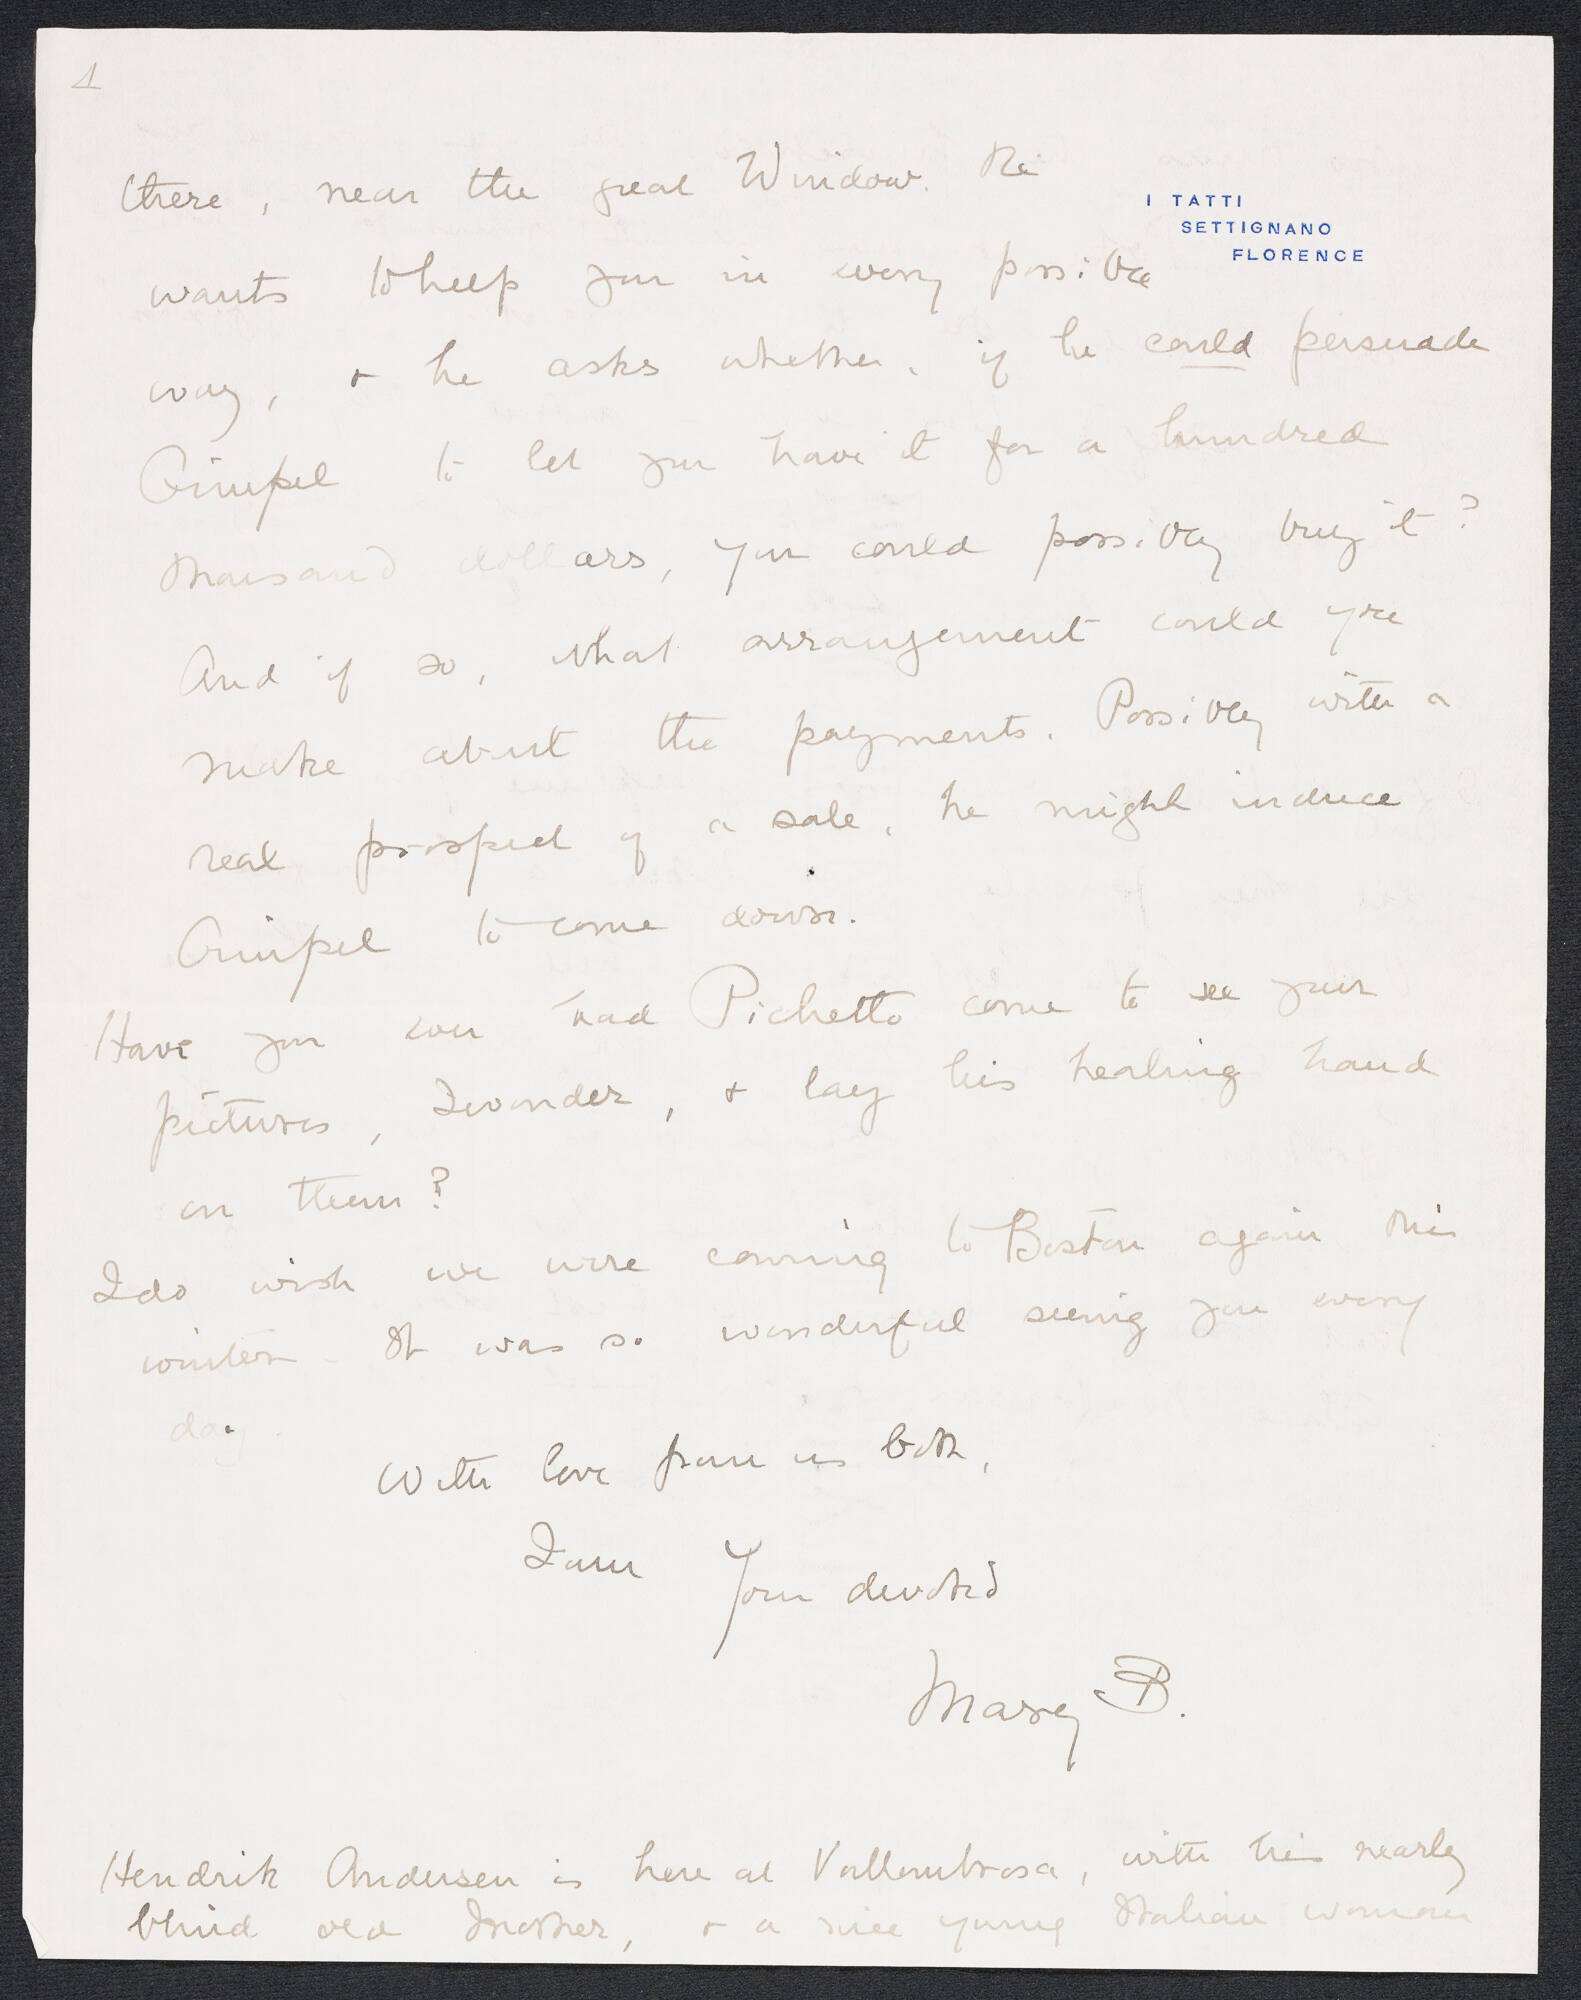 1
I TATTI
SETTIGNANO
FLORENCE
there, near the great Window. He
wants to help you in every possible
way, + he asks whether, if he could persuade
Gimpel to let you have it for a hundred
thousand dollars, you could possibly buy it?
And if so, what arrangement could you
make about the payments. Possibly with a
real prospect of a sale, he might induce
Gimpel to come down.
Have you ever had Pichetto come to see your
pictures, I wonder, + lay his healing hand
on them?
I do wish we were coming to Boston again this
winter - It was so wonderful seeing you every
day.
With love from us both,
I am Your devoted
Mary B.
Hendrik Andersen is here at Vallombrosa, with his nearly
blind old Mother, + a nice young Italian woman